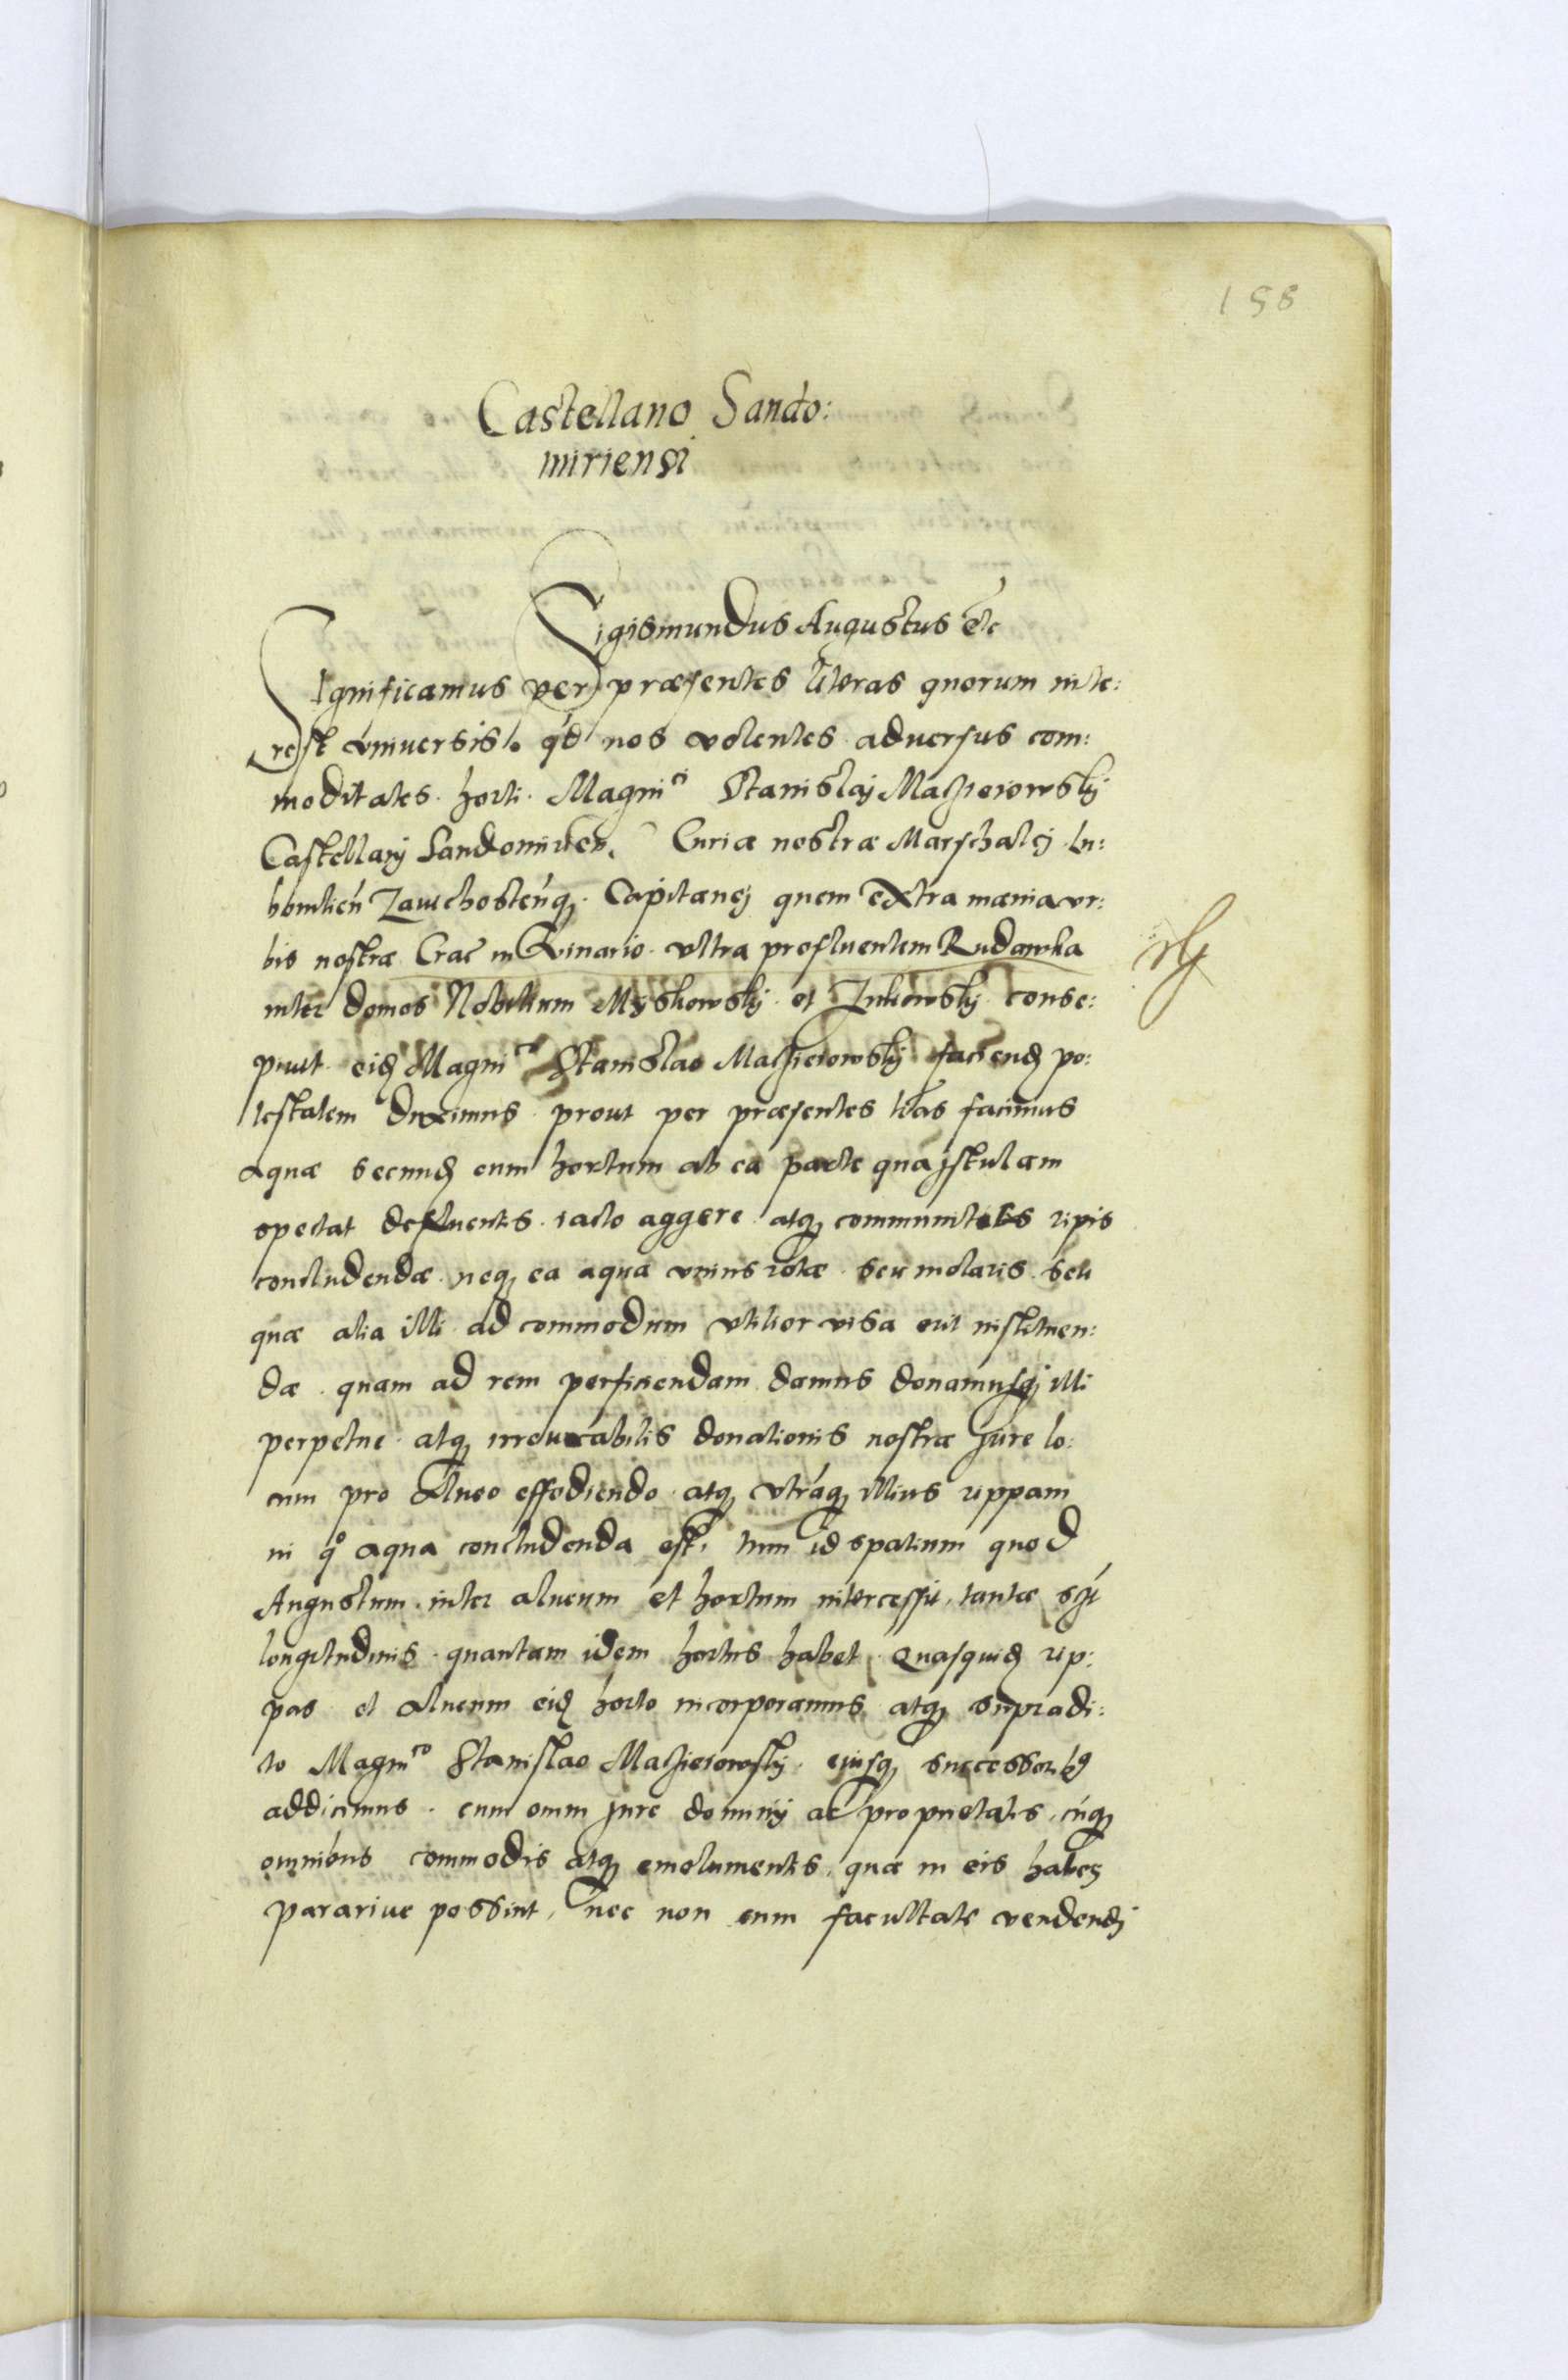 158
Castellano Sando:
miriensi
Sigismundus Augustus etc
Significamus per præsentes literas quorum inte:
rest vniuersis. qd nos volentes aduersus com:
moditates horti Magnici Stanislaj Maczieiowskj
Castellanj Sandomirien. Curiæ nostræ Marschalcj Lu:
bomlien Zawichostenq Capitanej quem extra mænia vr:
bis nostræ Crac in Viuario vltra profluentem Rudawka
inter domos Nobilium Myskowskj et Zukowskj conse:
piuit eid Magnico Stanislao Maczieiowskj faciend po:
testatem duximus prout per præsentes lras facimus
aquæ secund eum hortum ab ea parte qua jstulam
spectat defluentis iacto aggere atq communitis ripis
concludendæ neq ea aqua vnius rotæ seu molaris seu
quæ alia illi ad commodum vtilior visa erit instituen:
dæ quam ad rem perficiendam damus donamusq illi
perpetuæ atq irreuocabilis donationis nostræ jure lo:
cum pro alueo effodiendo atq vtráq illius rippam
in qo aqua concludenda est, tum id spatium quod
Angustum inter alueum et hortum intercessit, tantæ
longitudinis quantam idem hortus habet quasquid rip:
pas et alueum eid horto incorporamus atq supradi:
cto Magnico Stanislao Maczieiowskj eiusq successorib9
addicimus cum omni jure dominij ac proprietatis, cuq
omnibus commodis atq emolumentis, quæ in eis haberj
pararive possint, nec non cum facultate vendendj